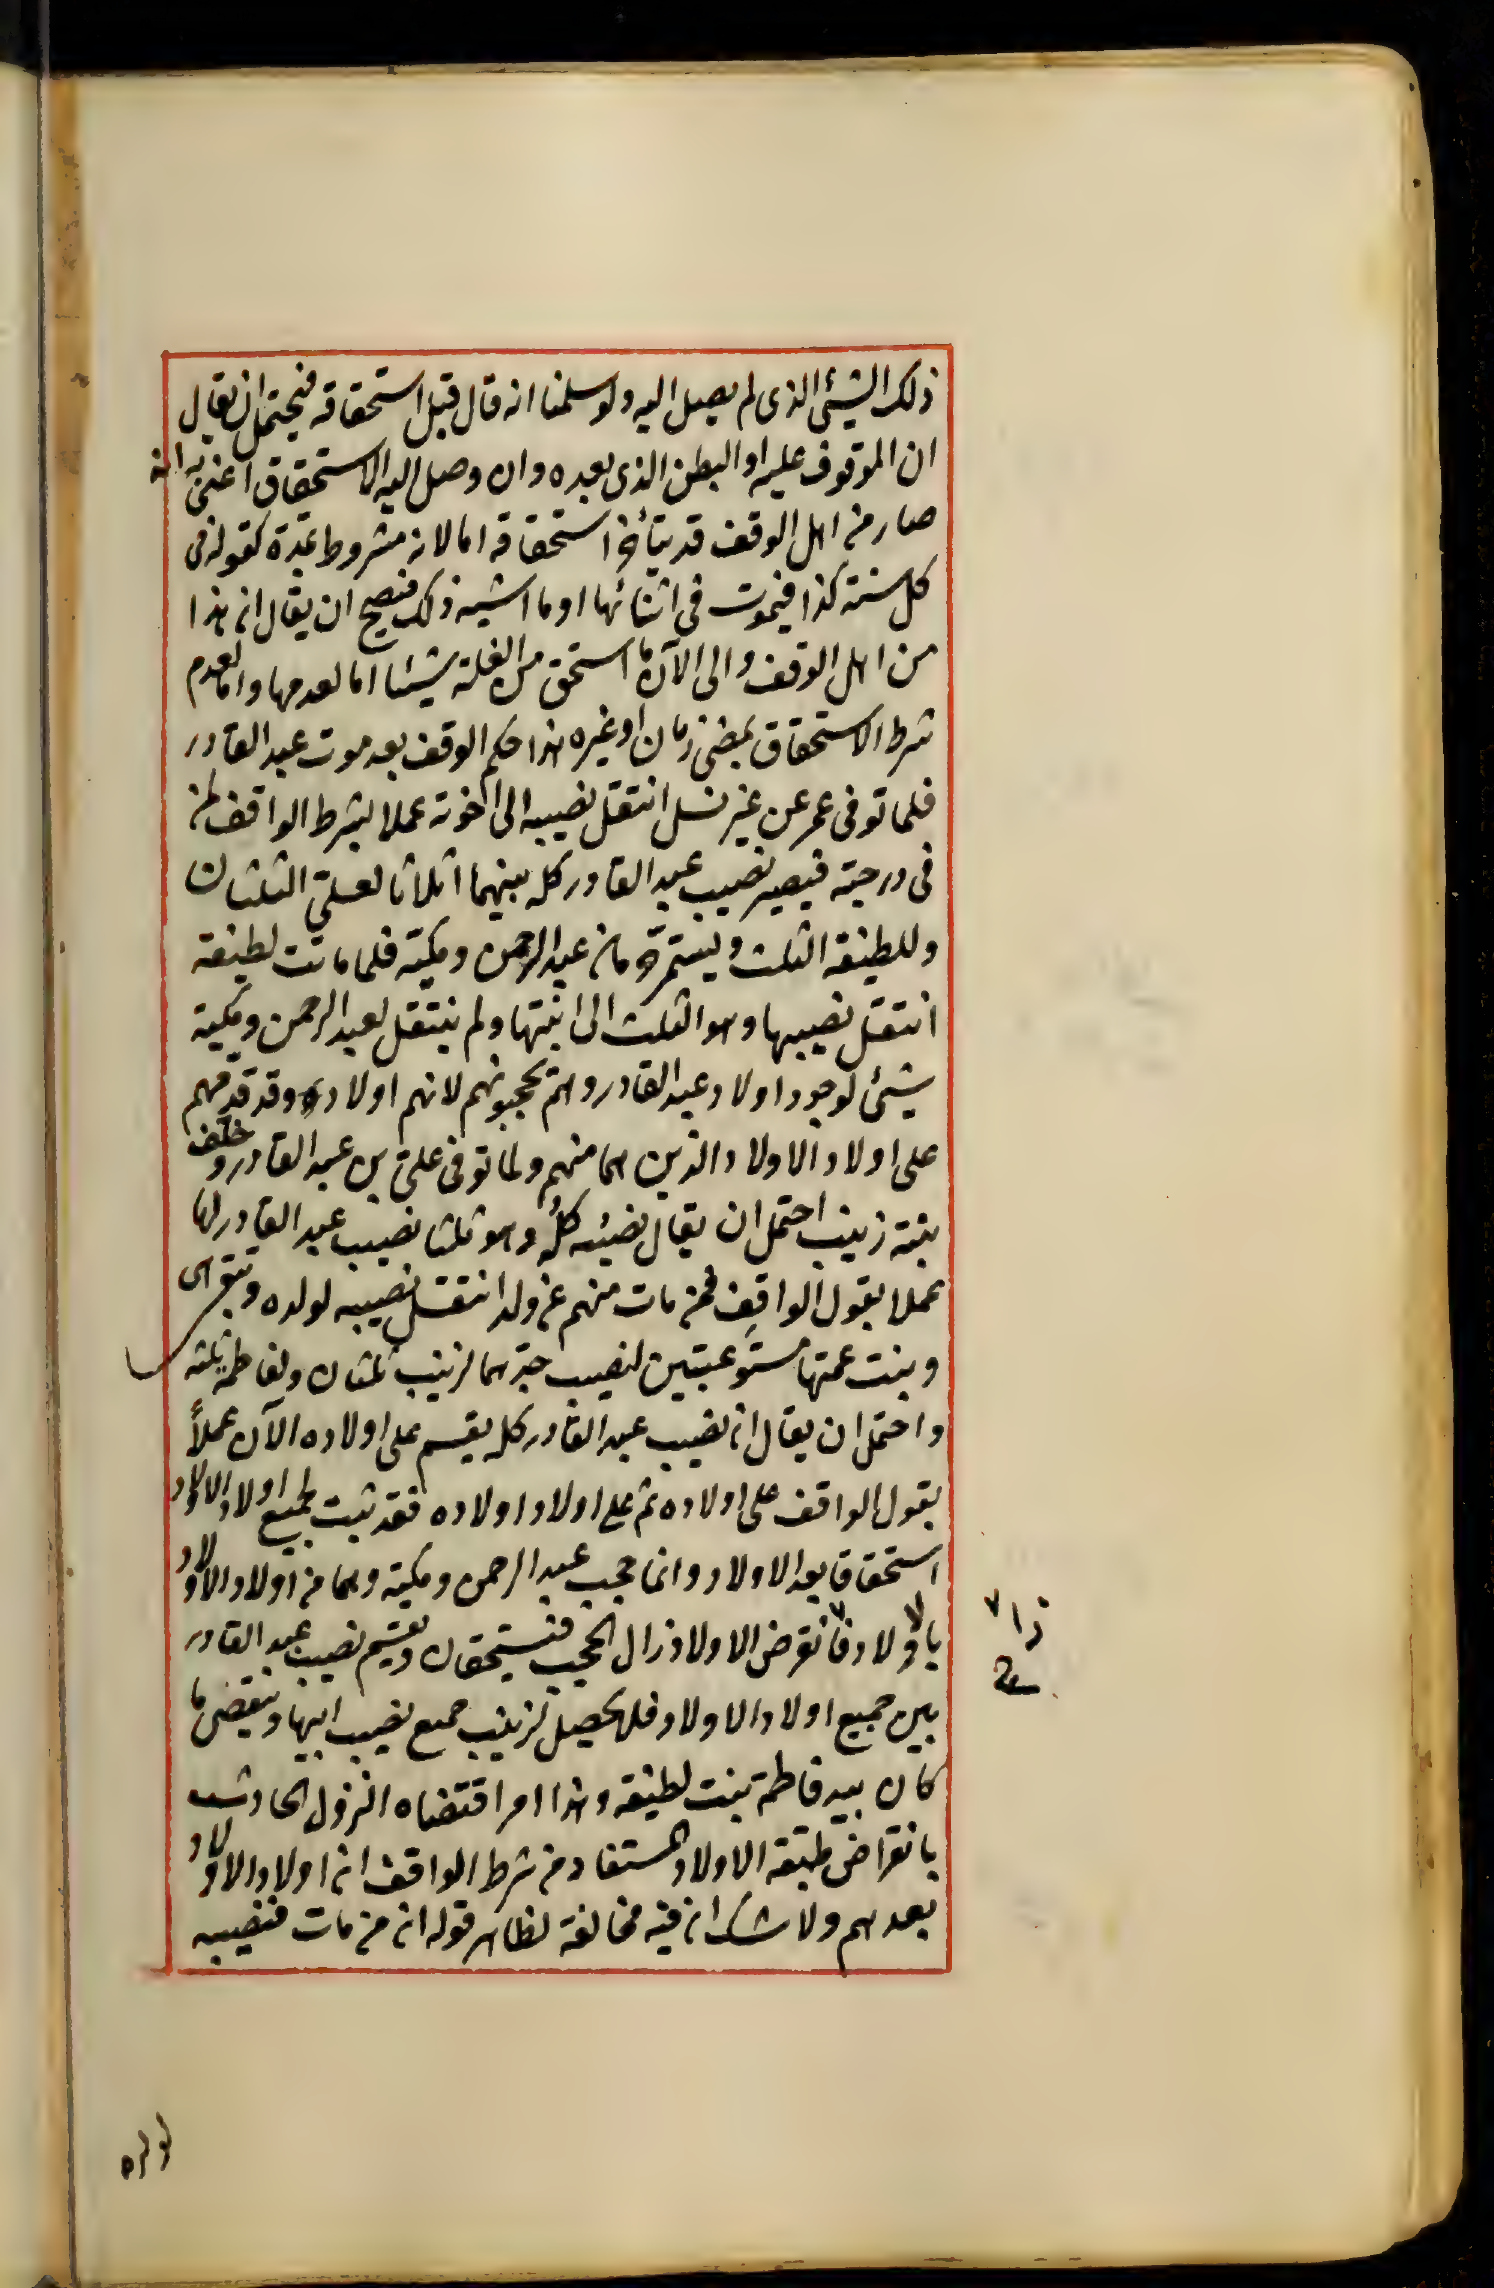 ذلك الشيئ الذى لم يصل اليه ولو سلمنا انه قال قبل استحقاقه فيحتمل ان يقال
ان الموقوف عليه او البطن الذى بعده وان وصل اليه الاستحقاق اعنى به انه
صار من اهل الوقف قد يتأخر استحقاقه اما لانه مشروط بمدة كقوله فى
كل سنة كذا فيموت فى اثنائها او ما اشبه ذلك فيصح ان يقال ان هذا
من اهل الوقف والى الآن ما استحق من الغلة شيئا اما لعدمها واما لعدم
شرط الاستحقاق بمضى زمان او غيره هذا حكم الوقف بعد موت عبد القادر
فلما توفى عمر عن غير نسل انتقل نصيبه الى اخوته عملا بشرط الواقف لمن
فى درجته فيصير نصيب عبد القادر كله بينهما اثلاثا لعلى الثلثان
وللطيفة الثلث ويستمر حرمان عبد الرحمن وملكية فلما ماتت لطيفة
انتقل نصيبها وهو الثلث الى ابنتها ولم ينتقل لعبد الرحمن وملكية
شيئ لوجود اولاد عبد القادر وهم يحجبونهم لانهم اولاده وقد قدمهم
على اولاد الاولاد الذين هما منهم ولما توفى على بن عبد القادر وخلف
بنته زينب احتمل ان يقال نصيبه كله وهو ثلثا نصيب عبد القادر لها
عملا بقول الواقف فمن مات منهم عن ولد انتقل نصيبه لولده وتبقى هى
وبنت عمتها مستوعبتين لنصيب جدهما لزينب ثلثان ولفاطمة ثلثه
واحتمل ان يقال ان نصيب عبد القادر كله يقسم على اولاده الآن عملاً
بقول الواقف على اولاده ثم على اولاد اولاده فقد ثبت لجميع اولاد الاولاد
استحقاقا بعد الاولاد وانما حجب عبد الرحمن وملكية وهما من اولاد الاولاد
بالاولاد فانقرض الاولاد زال الحجب فيستحقان ويقسم نصيب عبد القادر
بين جميع اولاد الاولاد فلا يحصل لزينب جميع نصيب ابيها وينقص ما
كان بيد فاطمة بنت لطيفة وهذا امر اقتضاه النزول الحادث
بانقراض طبقة الاولاد المستفاد من شرط الواقف ان اولاد الاولاد
بعدهم ولا شك ان فيه مخالفة لظاهر قوله ان من مات فنصيبه
لولده